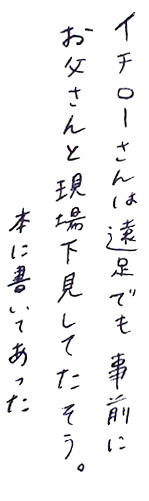 イチローさんは遠足でも事前に
お父さんと現場下見してたそう。
本に書いてあった